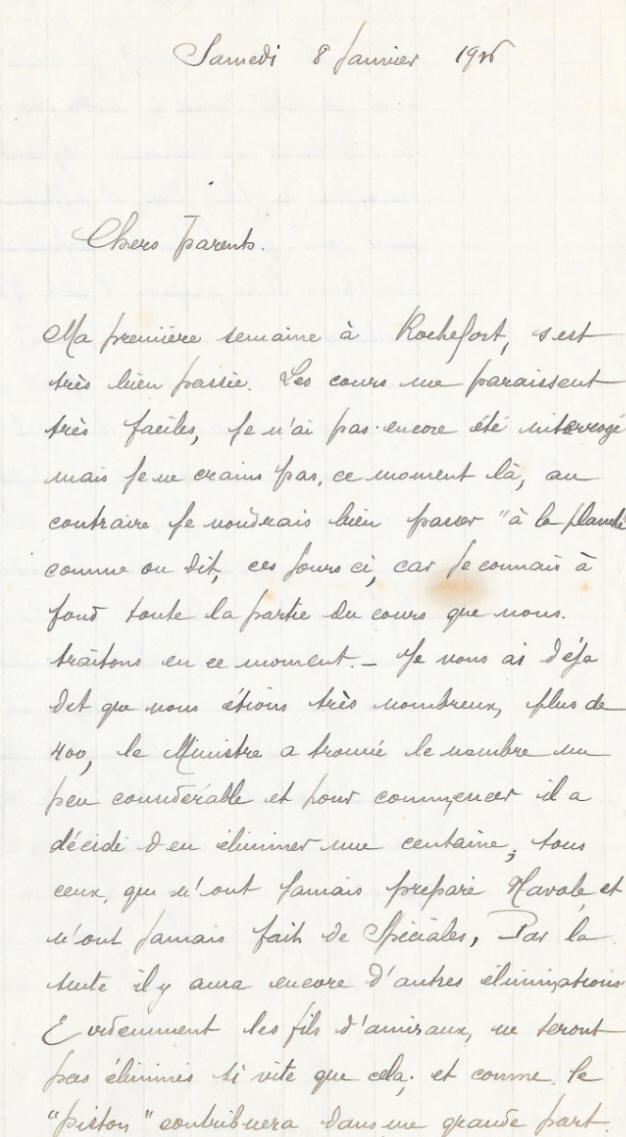 Samedi 8 Janvier 1916
Chers Parents.
Ma première semaine à Rochefort, s'est
très bien passée. Les cours me paraissent
très faciles, Je n'ai pas encore été interrogé
mais Je ne crains pas, ce moment là, au
contraire Je voudrais bien passer "à la planche
comme on dit, ces Jours ci, car Je connais à
fond toute la partie du cours que nous.
traitons en ce moment. _ Je vous ai déja
dit que nous étions très nombreux, plus de
400, le Ministre a trouvé le nombre un
peu considérable et pour commencer il a
décidé d'en éliminer une centaine; tous
ceux, qui n'ont Jamais préparé Navale, et
n'ont Jamais fait de Spéciales, Par la
suite il y aura encore d'autres éliminations
Evidemment les fils d'amiraux, ne seront
pas éliminés si vite que cela; et comme le
"piston" contribuera dans une grande part